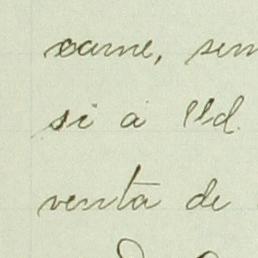 carne, sem
si á Vd.
venta de